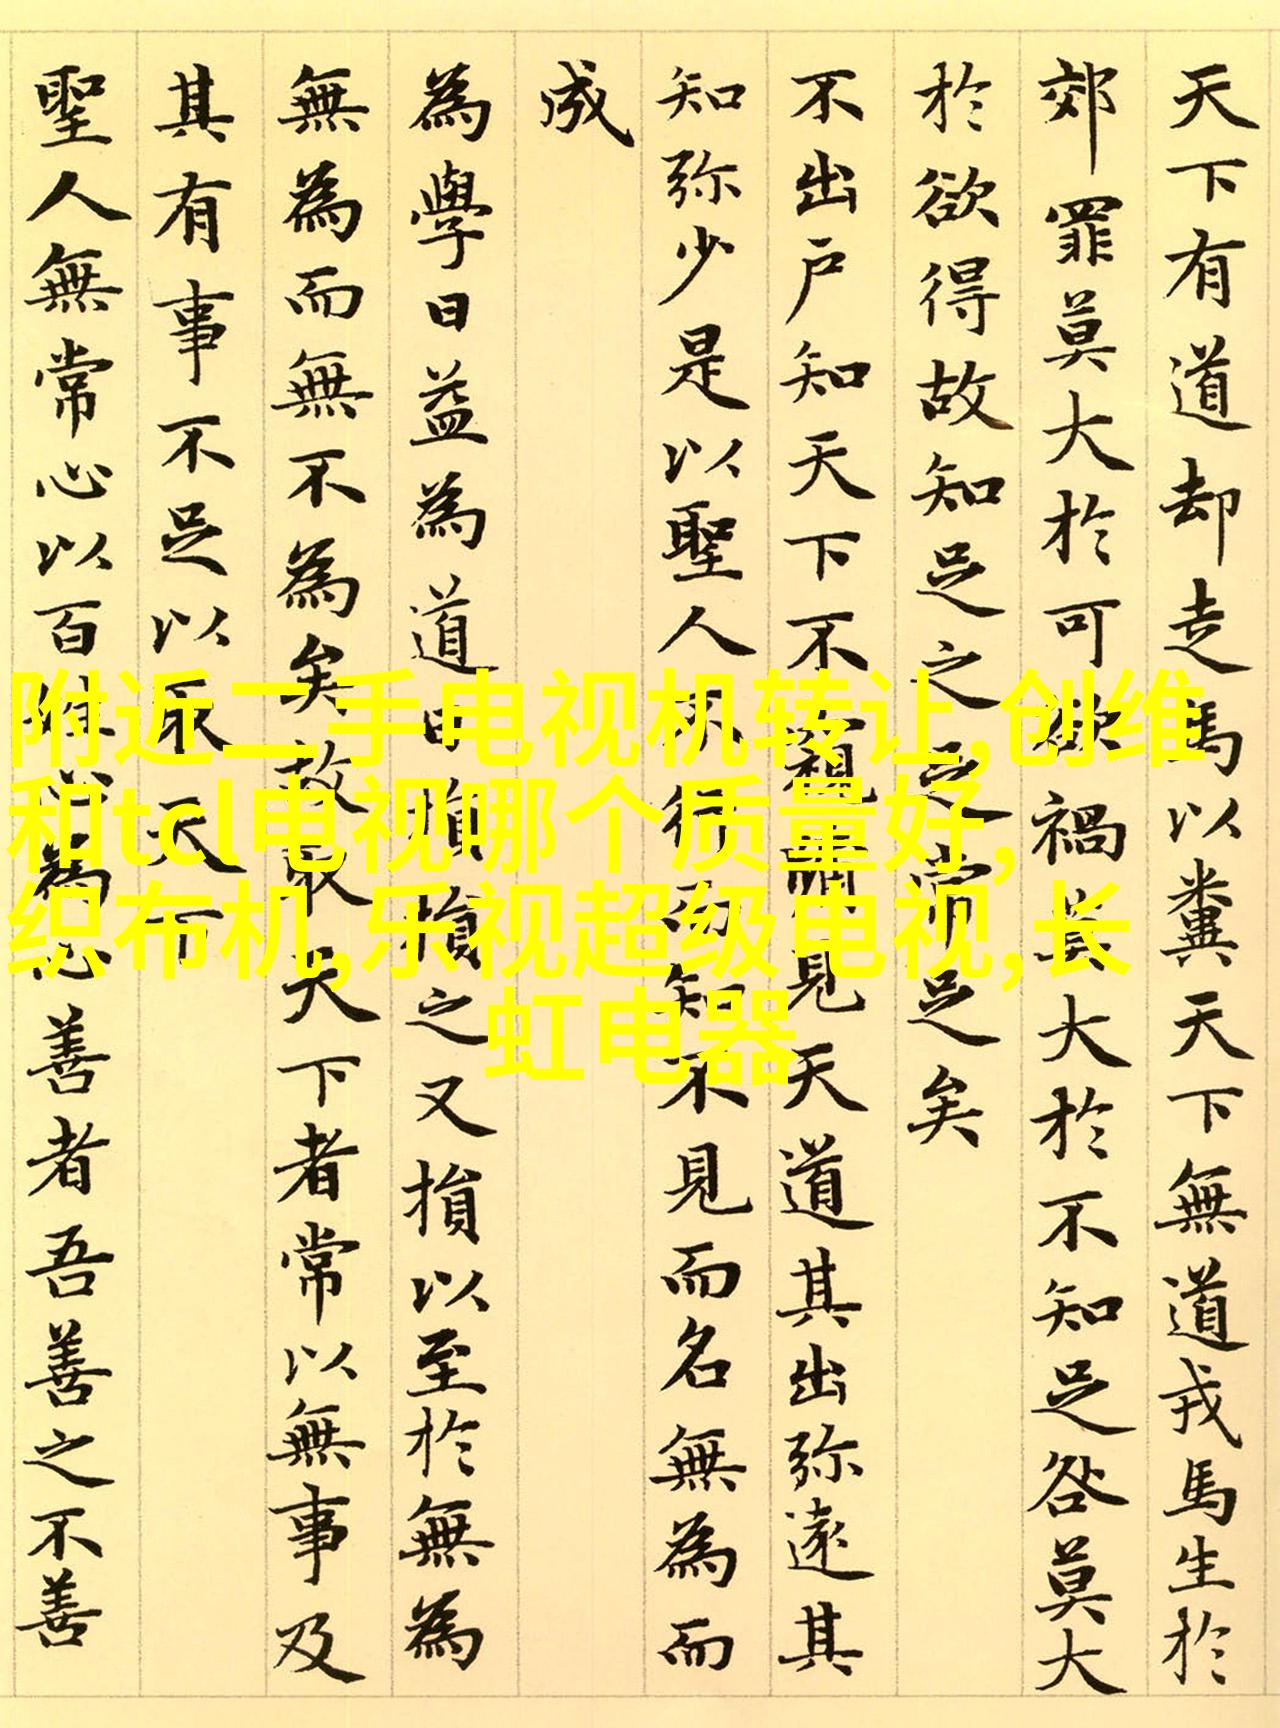 天下有道却走馬以糞天下無道戎馬生於
郊罪莫大於可欲禍莫大於不知足咎莫大
於欲得故知足之足常足矣
不出户知天下不窺牖見天道其出弥遠其
知弥少是以聖人不行而知不見而名無為而
成
為學日益為道日損損之又損以至於無為
無為而無不為矣故取天下者常以無事及
其有事不足以取天下
聖人無常心以百姓心為心善者吾善之不善
附近二手电视机转让,创维
和tcl电视哪个质量好,
织布机,乐视超级电视,长
虹电器